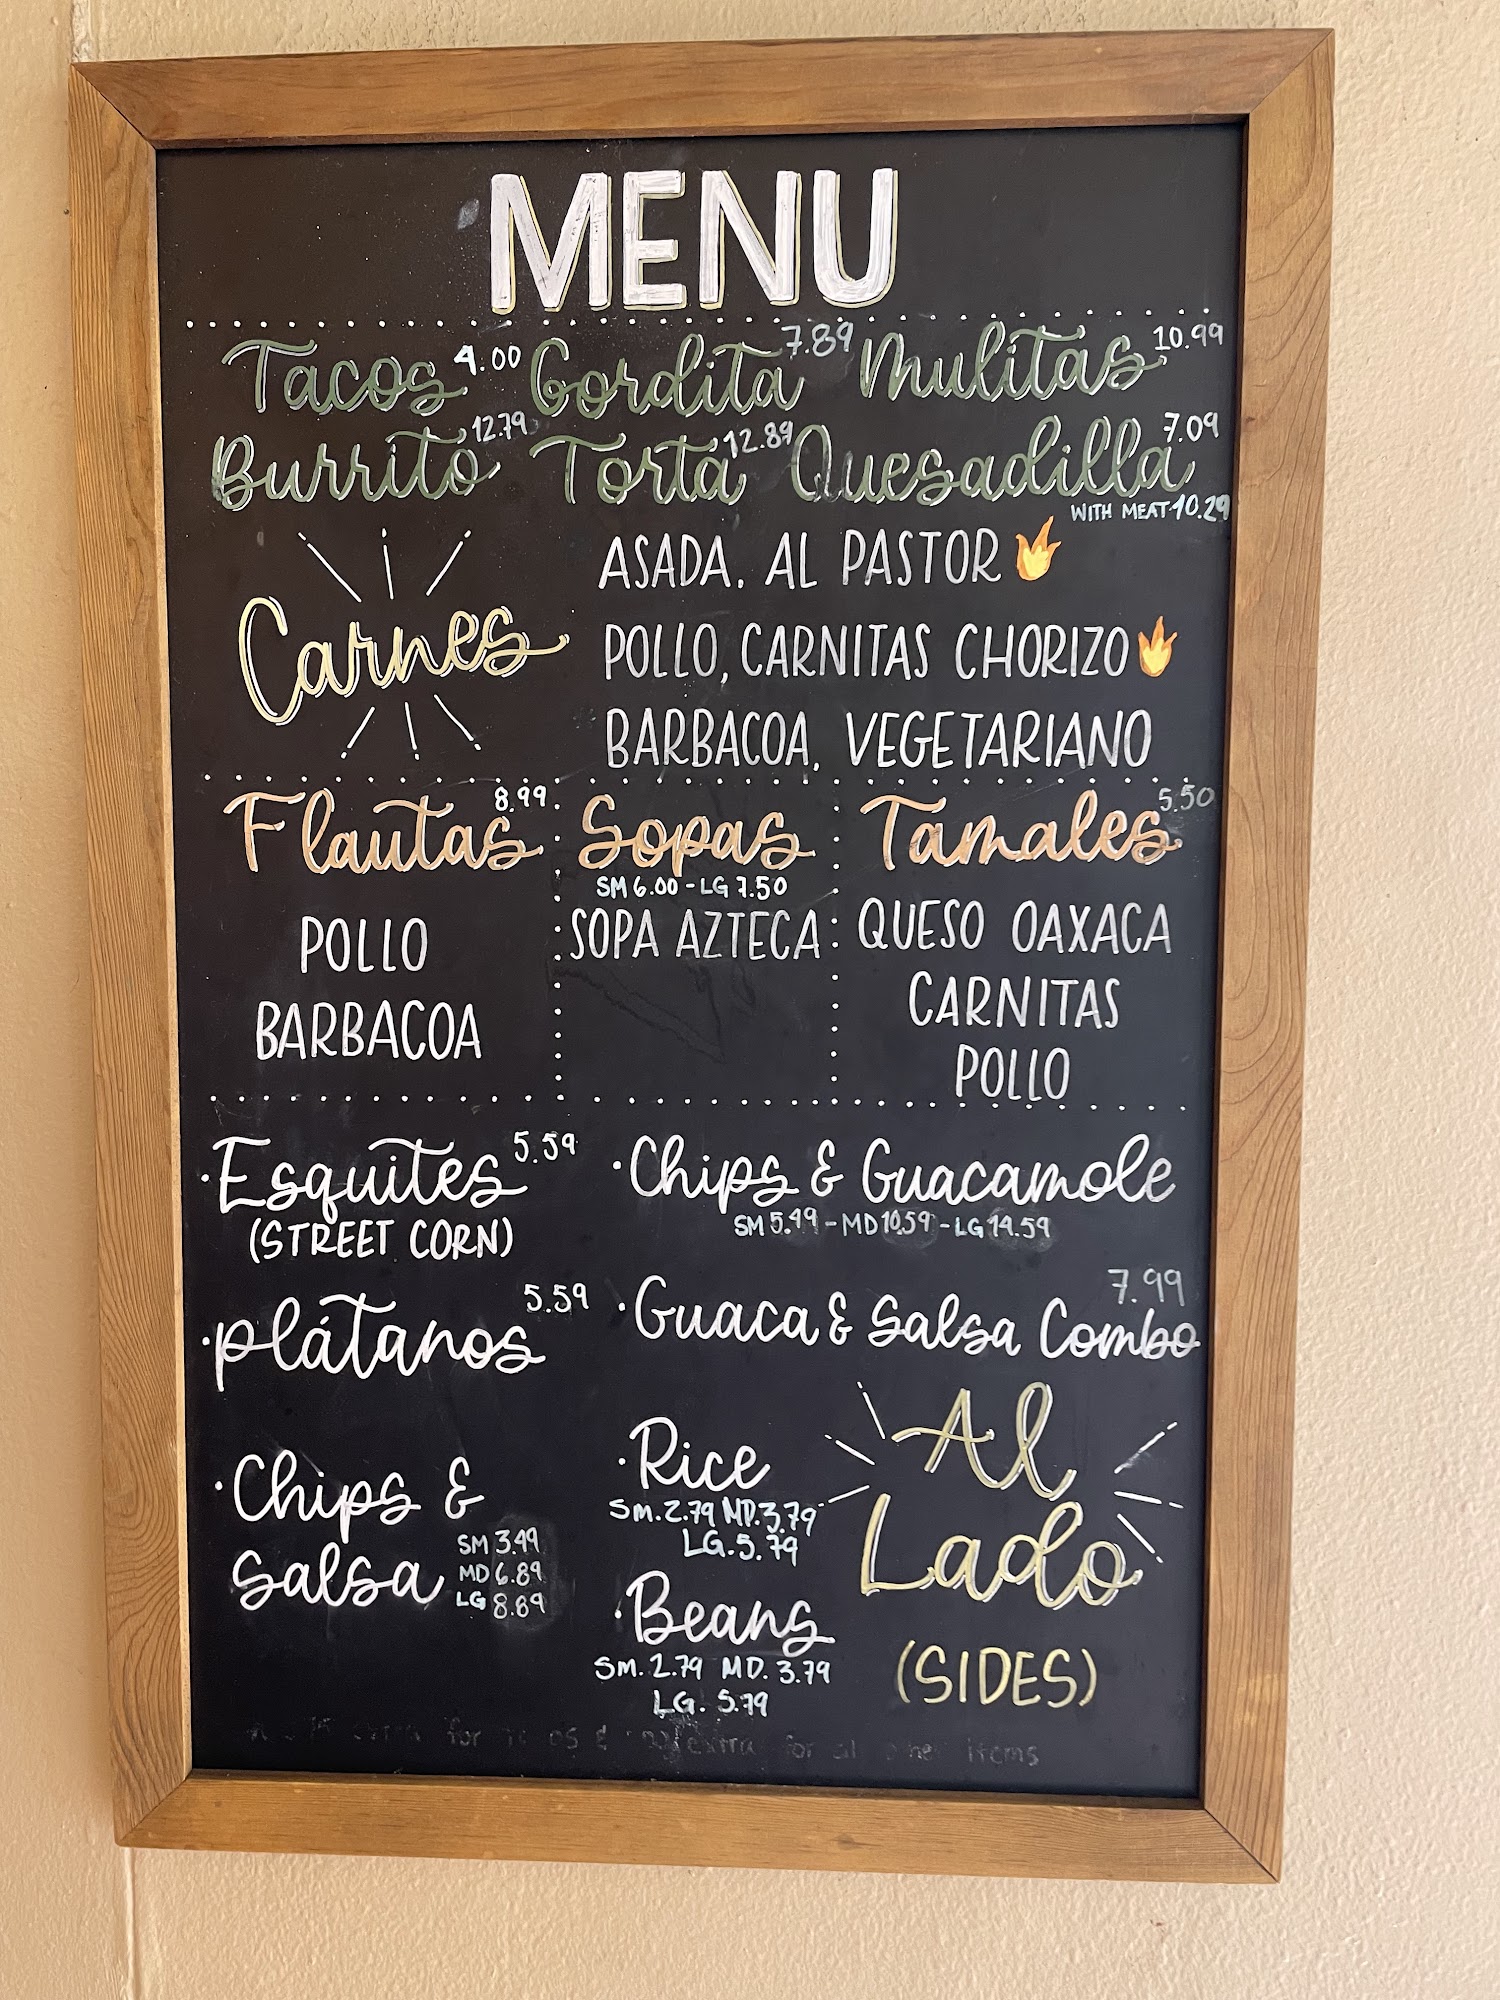 MENU
Tacos 4.00 Gordita 7.89 Mulitas 10.99
Burrito 12.79 Torta 12.89 Quesadilla 7.09
WITH MEAT 10.29
Carnes
ASADA, AL PASTOR
POLLO, CARNITAS CHORIZO
BARBACOA, VEGETARIANO
Flautas 8.99
POLLO
BARBACOA
Sopas
SM 6.00 - LG 7.50
SOPA AZTECA
Tamales 5.50
QUESO OAXACA
CARNITAS
POLLO
·Esquites 5.59
(STREET CORN)
·Chips & Guacamole
SM 5.49 - MD 10.59 - LG 14.59
·plátanos 5.59
·Guaca & Salsa Combo 7.99
·Chips &
Salsa
SM 3.49
MD 6.89
LG 8.89
·Rice
SM. 2.79 MD. 3.79
LG. 5.79
·Beans
SM. 2.79 MD. 3.79
LG. 5.79
Al
Lado
(SIDES)
extra for & extra for items